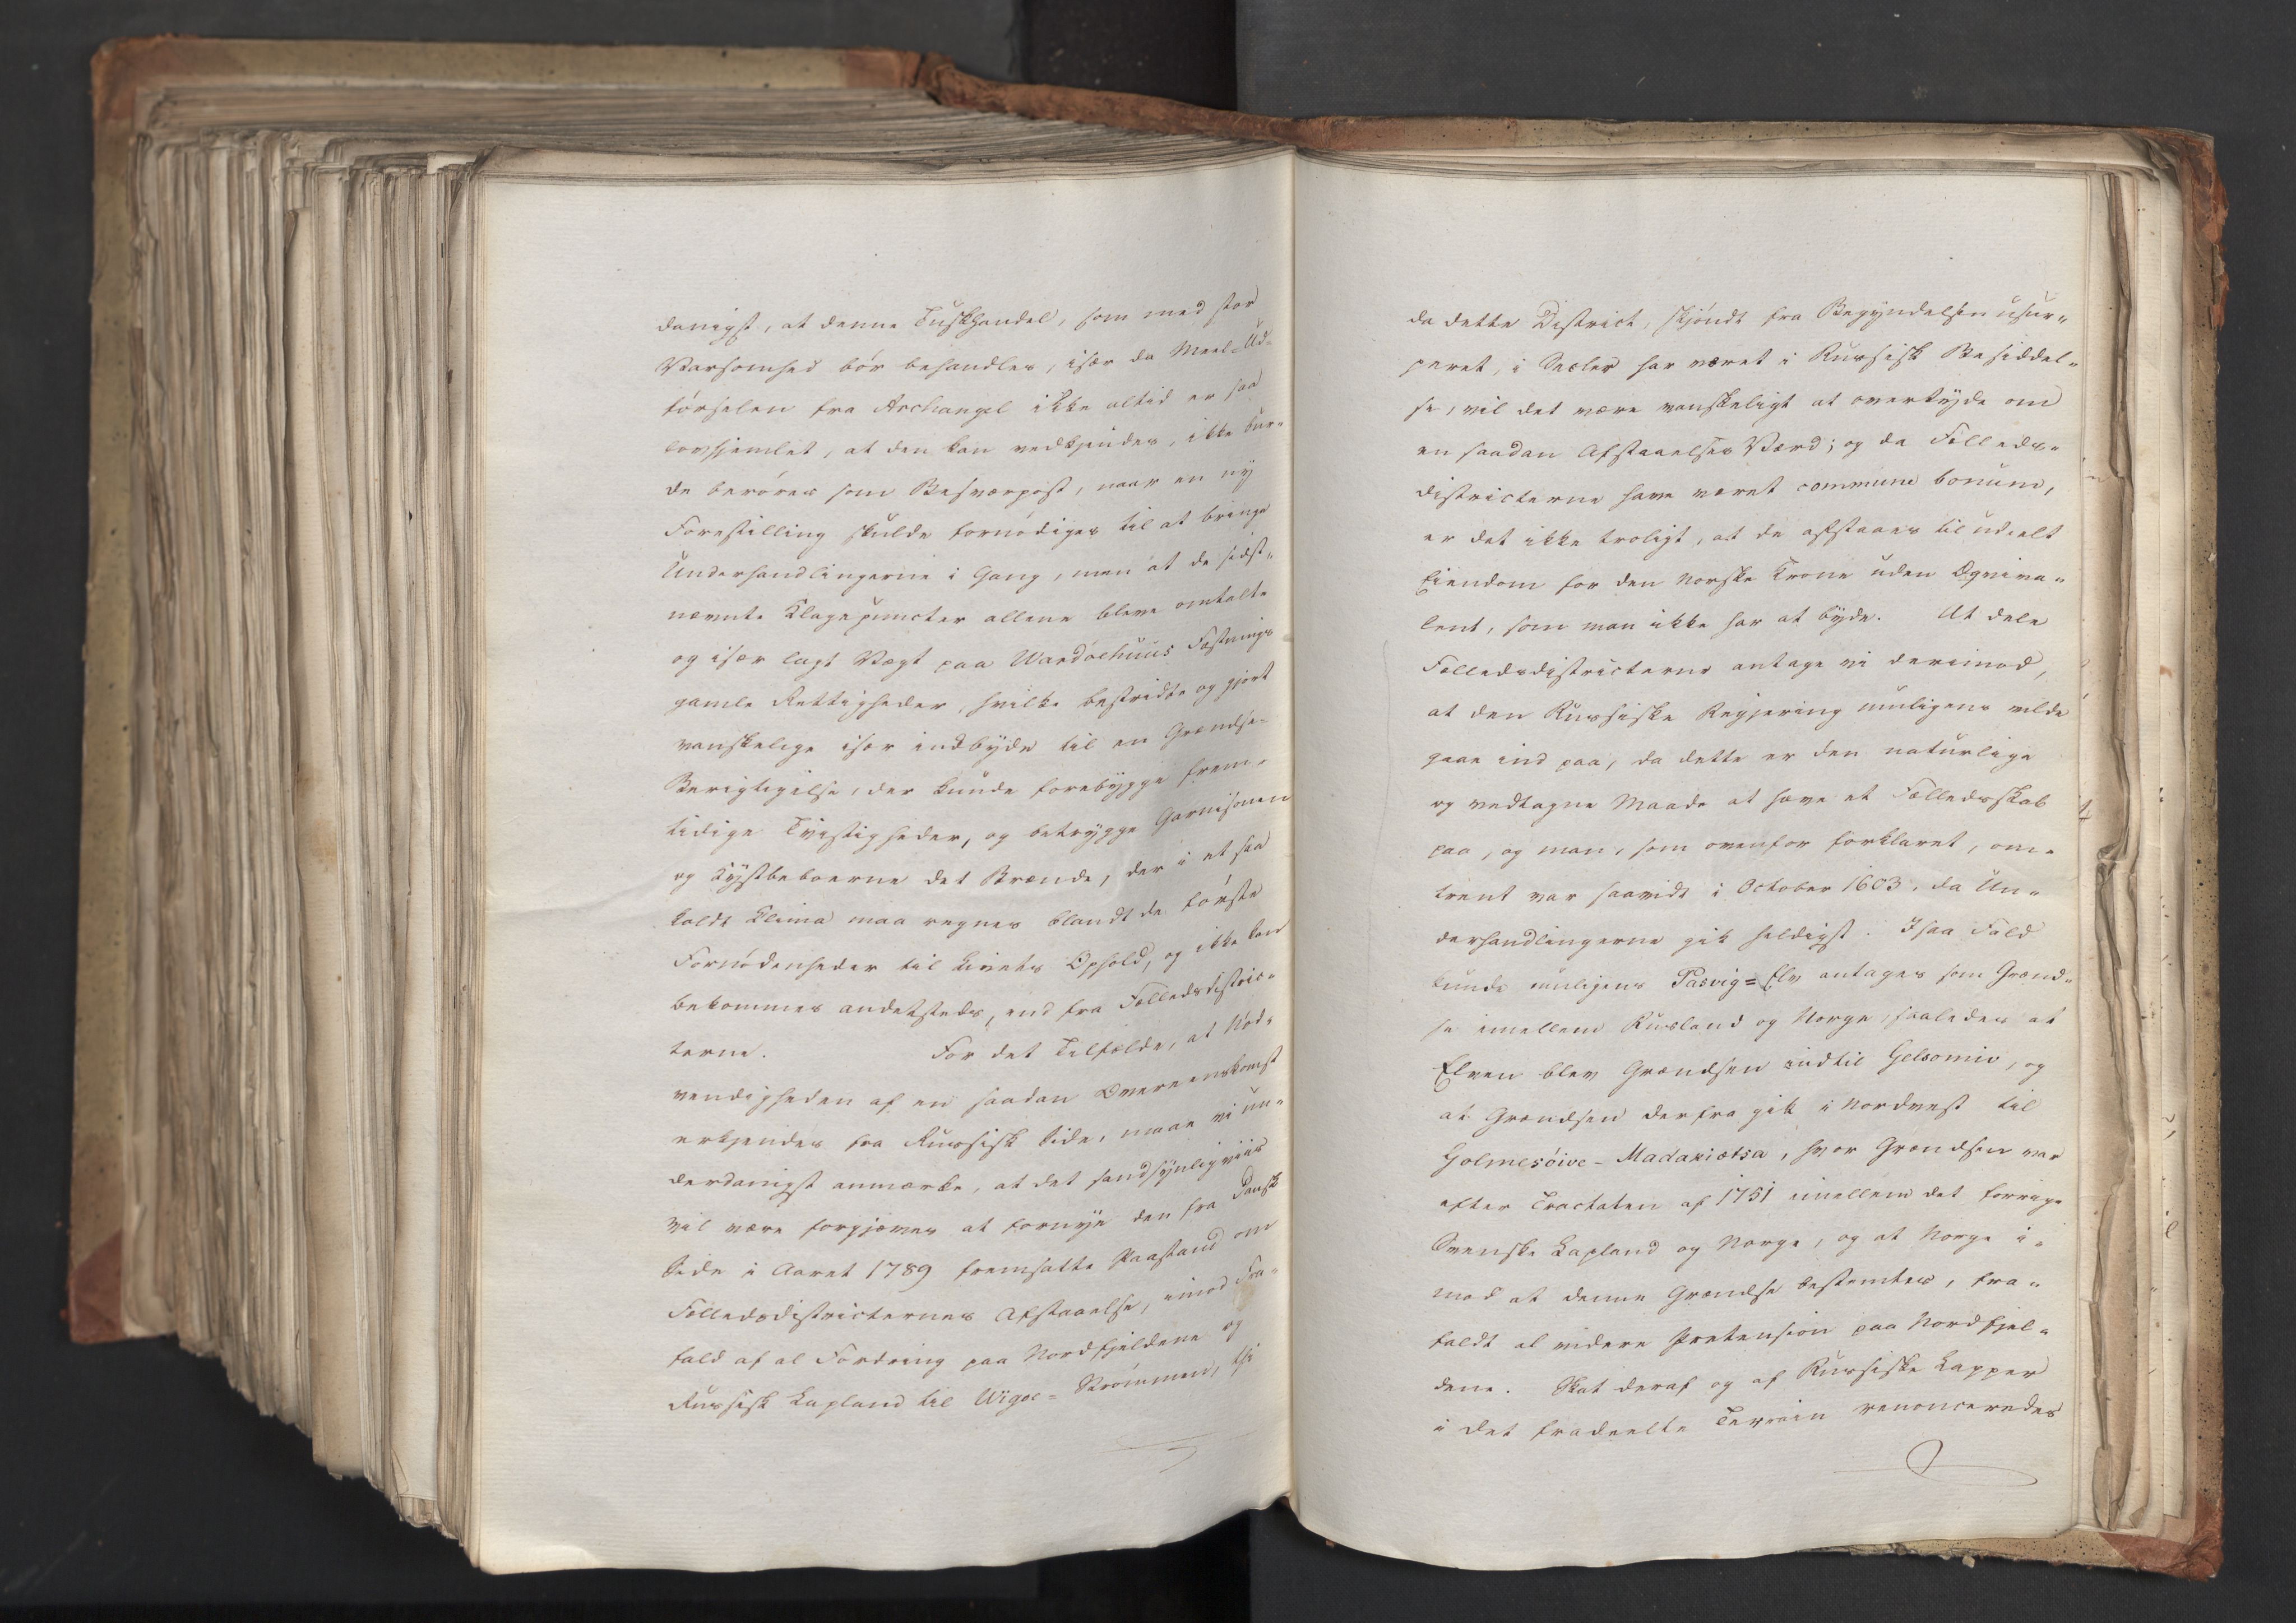 danigst, at denne Tuskhandel, som med stor
Varsomhed bör behandles, især da Meel-Ud-
förselen fra Archangel ikke altid er saa
lovhjemlet, at den kan vedkjendes, ikke bur-
de beröres som Besværpost, naar en ny
Forestilling skulde fornödiges til at bringe
Underhandlingerne i Gang, men at de sidst-
nævnte Klagepuncter allene bleve omtalte
og især lagt Vægt paa Wardöehuus Fæstnings
gamle Rettigheder, hvilke bestridte og gjort
vanskelige især indbyde til en Grændse-
Berigtigelse, der kunde forebygge frem-
tidige Tvistigheder, og betrygge Garnisonen
og Kystbeboerne det Brænde, der i et saa
koldt Klima maa regnes blandt de förste
Fornödenheder til Livets Ophold, og ikke kan
bekommes andetsteds, end fra Fælledsdistric-
terne. For det Tilfælde, at Nöd-
vendigheden af en saadan Overeenskomst
erkjendes fra Russisk Side, maae vi un-
derdanigst anmærke, at det sandsynligviis
vil være forgjæves at fornye den fra Dansk
Side i Aaret 1789 fremsatte Paastand om
Fælledsdistricternes Afstaaelse, imod Fra-
fald af al Fordring paa Nordfjeldene og
Russisk Lapland til Wigee-Strömmen, thi
da dette District, skjöndt fra Begyndelsen usur-
peret, i Secler har været i Russisk Besiddel-
se, vil det være vanskeligt at overtyde om
en saadan Afstaaelses Værd; og da Fælleds-
districterne have været commune bonum,
er det ikke troligt, at de afstaaes til udeelt
Eiendom for den Norske Krone uden Æqviva-
lent, som man ikke har at byde. At dele
Fælledsdistricterne antage vi derimod,
at den Russiske Regjering muligens vilde
gaae ind paa, da dette er den naturlige
og vedtagne Maade at hæve et Fælledsskab
paa, og man, som ovenfor forklaret, om-
trent var saavidt i October 1603, da Un-
derhandlingerne gik heldigst. I saa Fald
kunde muligens Pasvig-Elv antages som Grænd-
se imellem Rusland og Norge, saaledes at
Elven blev Grændsen indtil Gelsomio, og
at Grændsen derfra gik i Nordvest til
Golmesöive-Madakiætsa, hvor Grændsen var
efter Tractaten af 1751 imellem det forrige
Svenske Lapland og Norge, og at Norge i-
mod at denne Grændse bestemtes, fra-
faldt al videre Prætension paa Nordfjel-
dene. Skat deraf og af Russiske Lapper
i det fradeelte Terrain renonceredes